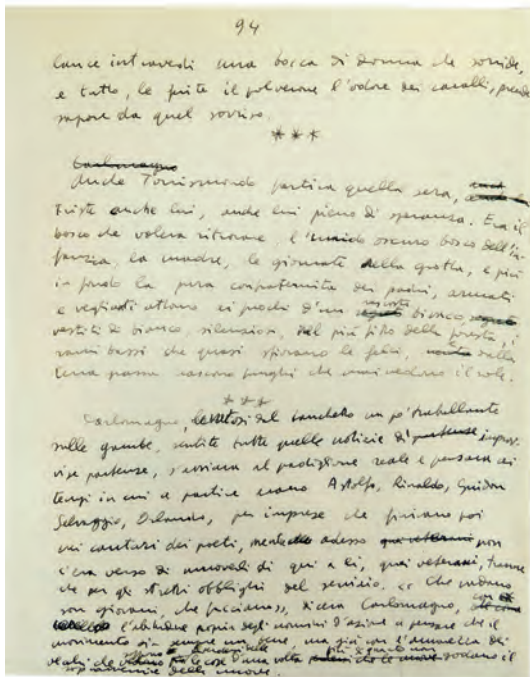 94
lance intravedi una bocca di donna che sorride,
e tutto, le ferite il polverone l'odore dei cavalli, prende
sapore da quel sorriso.
***
Carlomagno
Anche Torrismondo partiva quella sera,
triste anche lui, anche lui pieno di speranza. Era il
bosco che voleva ritrovare, l'umido oscuro bosco dell'in-
fanzia, la madre, le giornate della grotta, e più
in fondo la pura confraternita dei padri, armati
e veglianti attorno ai fuochi d'un nascosto bivacco,
vestiti di bianco, silenziosi, nel più fitto della foresta, i
rami bassi che quasi sfiorano le felci, dalla
terra grassa nascono funghi che mai vedono il sole.
***
Carlomagno, levatosi dal banchetto un po' traballante
sulle gambe, sentite tutte quelle notizie di partenze improv-
vise partenze, s'avviava al padiglione reale e pensava ai
tempi in cui a partire erano Astolfo, Rinaldo, Guidon
Selvaggio, Orlando, per imprese che finivano poi
nei cantari dei poeti, mentre adesso quei veterani non
c'era verso di smuoverli di qui a lì, quei veterani, tranne
che per gli stretti obblighi del servizio. «Che vadano,
son giovani, che facciano», diceva Carlomagno, con
l'abitudine propria degli uomini d'azione a pensare che il
movimento sia sempre un bene, ma già con l'amarezza dei
vecchi che le cose d'una volta godano il
sopravvenire delle nuove.